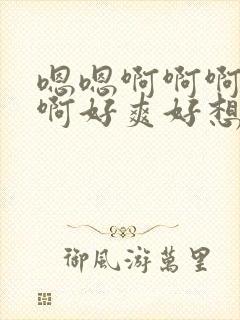 嗯嗯啊啊啊
啊好爽好想
御風游萬里